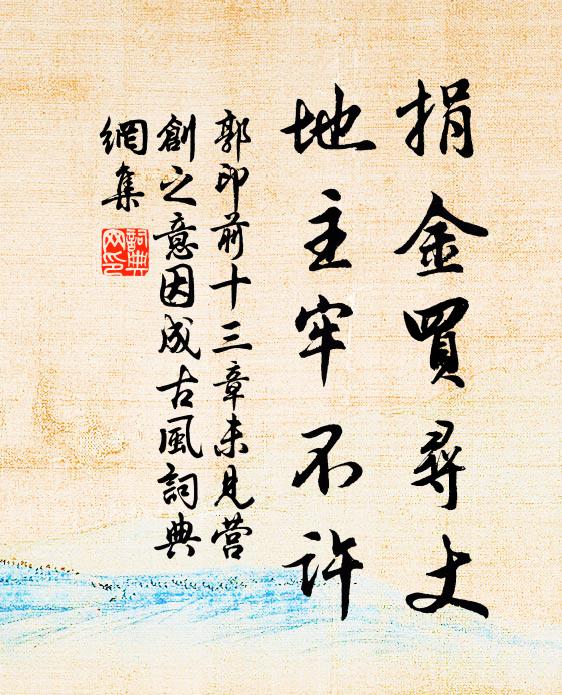 捐金買尋丈
地主牢不許
郭印前十三章未見營
創之意因成古風詞典
網集
詞典網印